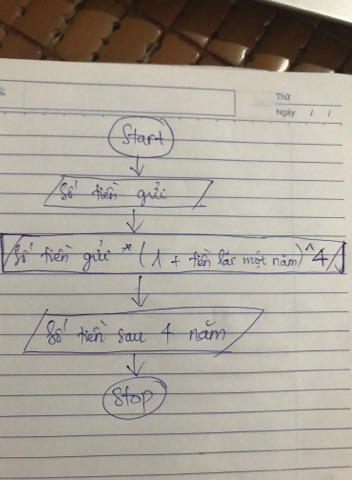 Thứ
Ngày / /
Start
Số tiền gửi
Số tiền gửi * (1 + tiền lãi một năm)^4
Số tiền sau 4 năm
Stop